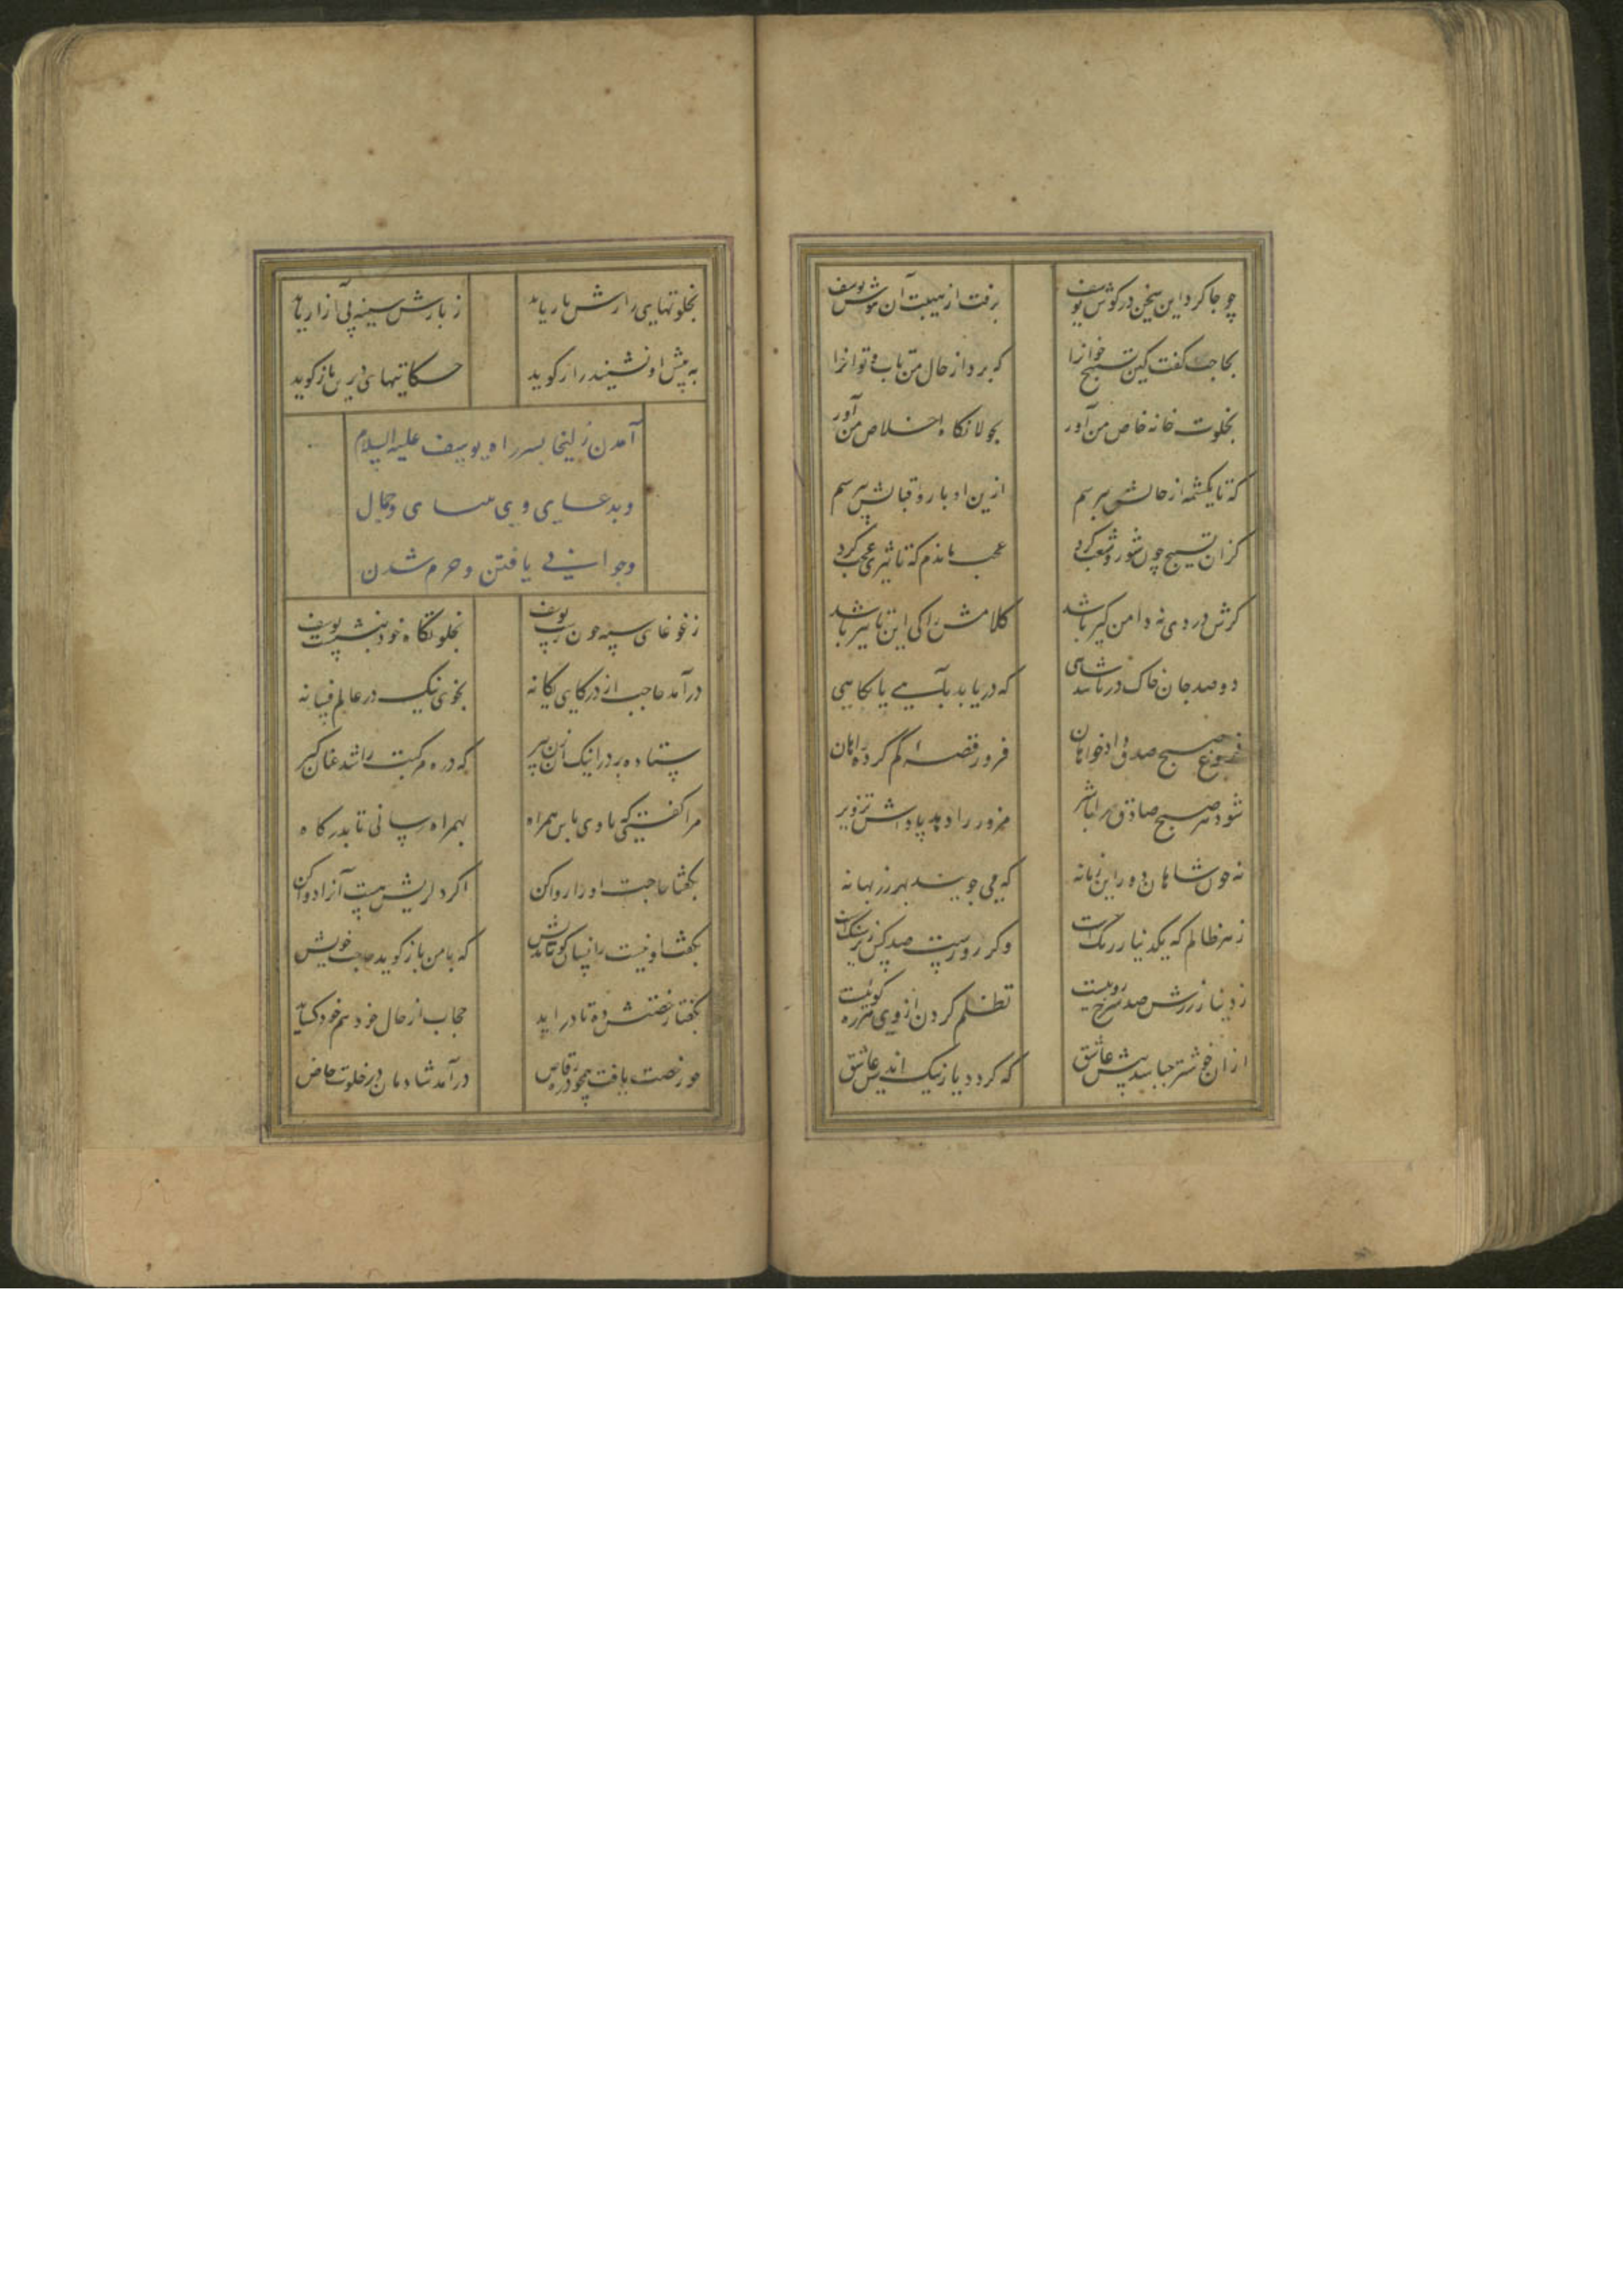 چو جا کرد این سخن در گوش یوسف برفت از هیبت آن هوش یوسف
بحاجب گفت کین تسبیح خوانرا که برد از حال من تاب و توانرا
بخلوت خانه خاص من آور بجولانگاه اخلاص من آور
که تا یکشمه از حالش بپرسم ازین ادبار و اقبالش بپرسم
کزان تسبیح چون شور و شغب کرد عجب ماندم که تاثیری عجب کرد
گرش دردی نه دامن گیر باشد کلامش را کی این تاثیر باشد
دو صد جان خاک در شاهی که دریابد بآهی یا نگاهی
فروغ صبح صدق دادخواهان فرور قصه گم کرده راهان
شود هر صبح صادق مزور را دهد پاداش تزویر
نه چون شاهان دور این زمانه که می جویند بهر زر بهانه
ز هر ظالم که یکدینار
ز دینار زرش صد سرخ رویست تظلم کردن از وی هرزه گوئیست
ازان خوشتر چه باشد پیش عاشق که گردد یار نیک اندیش عاشق
بخلوتهای رازش بار یابد ز بارش سینه بی آزار یابد
به پیش او نشیند راز گوید حکایتهای دیرین باز گوید
آمدن زلیخا بسر راه یوسف علیه السلام
و بدعای وی بینای و جمال
و جوانی یافتن و حرم شدن
ز غوغای سپه چون رست یوسف بخلوتگاه خود بنشست یوسف
درآمد حاجب از در کای یگانه بخوی نیک در عالم فسانه
ستاده بر در اینک آن زن پیر که در ره مرکبت را شد عنان گیر
مرا گفتی که با وی باش همراه بهمراه رسانی تا بدرگاه
بگفتا حاجت او را روا کن اگر دردیش هست آنرا دوا کن
بگفتا او نیست زانسان کوته اندیش که با من باز گوید حاجت خویش
بگفتا رخصتش ده تا در آید حجاب از حال خود هم خود گشاید
چو رخصت یافت همچو ذره رقاص درآمد شادمان در خلوت خاص